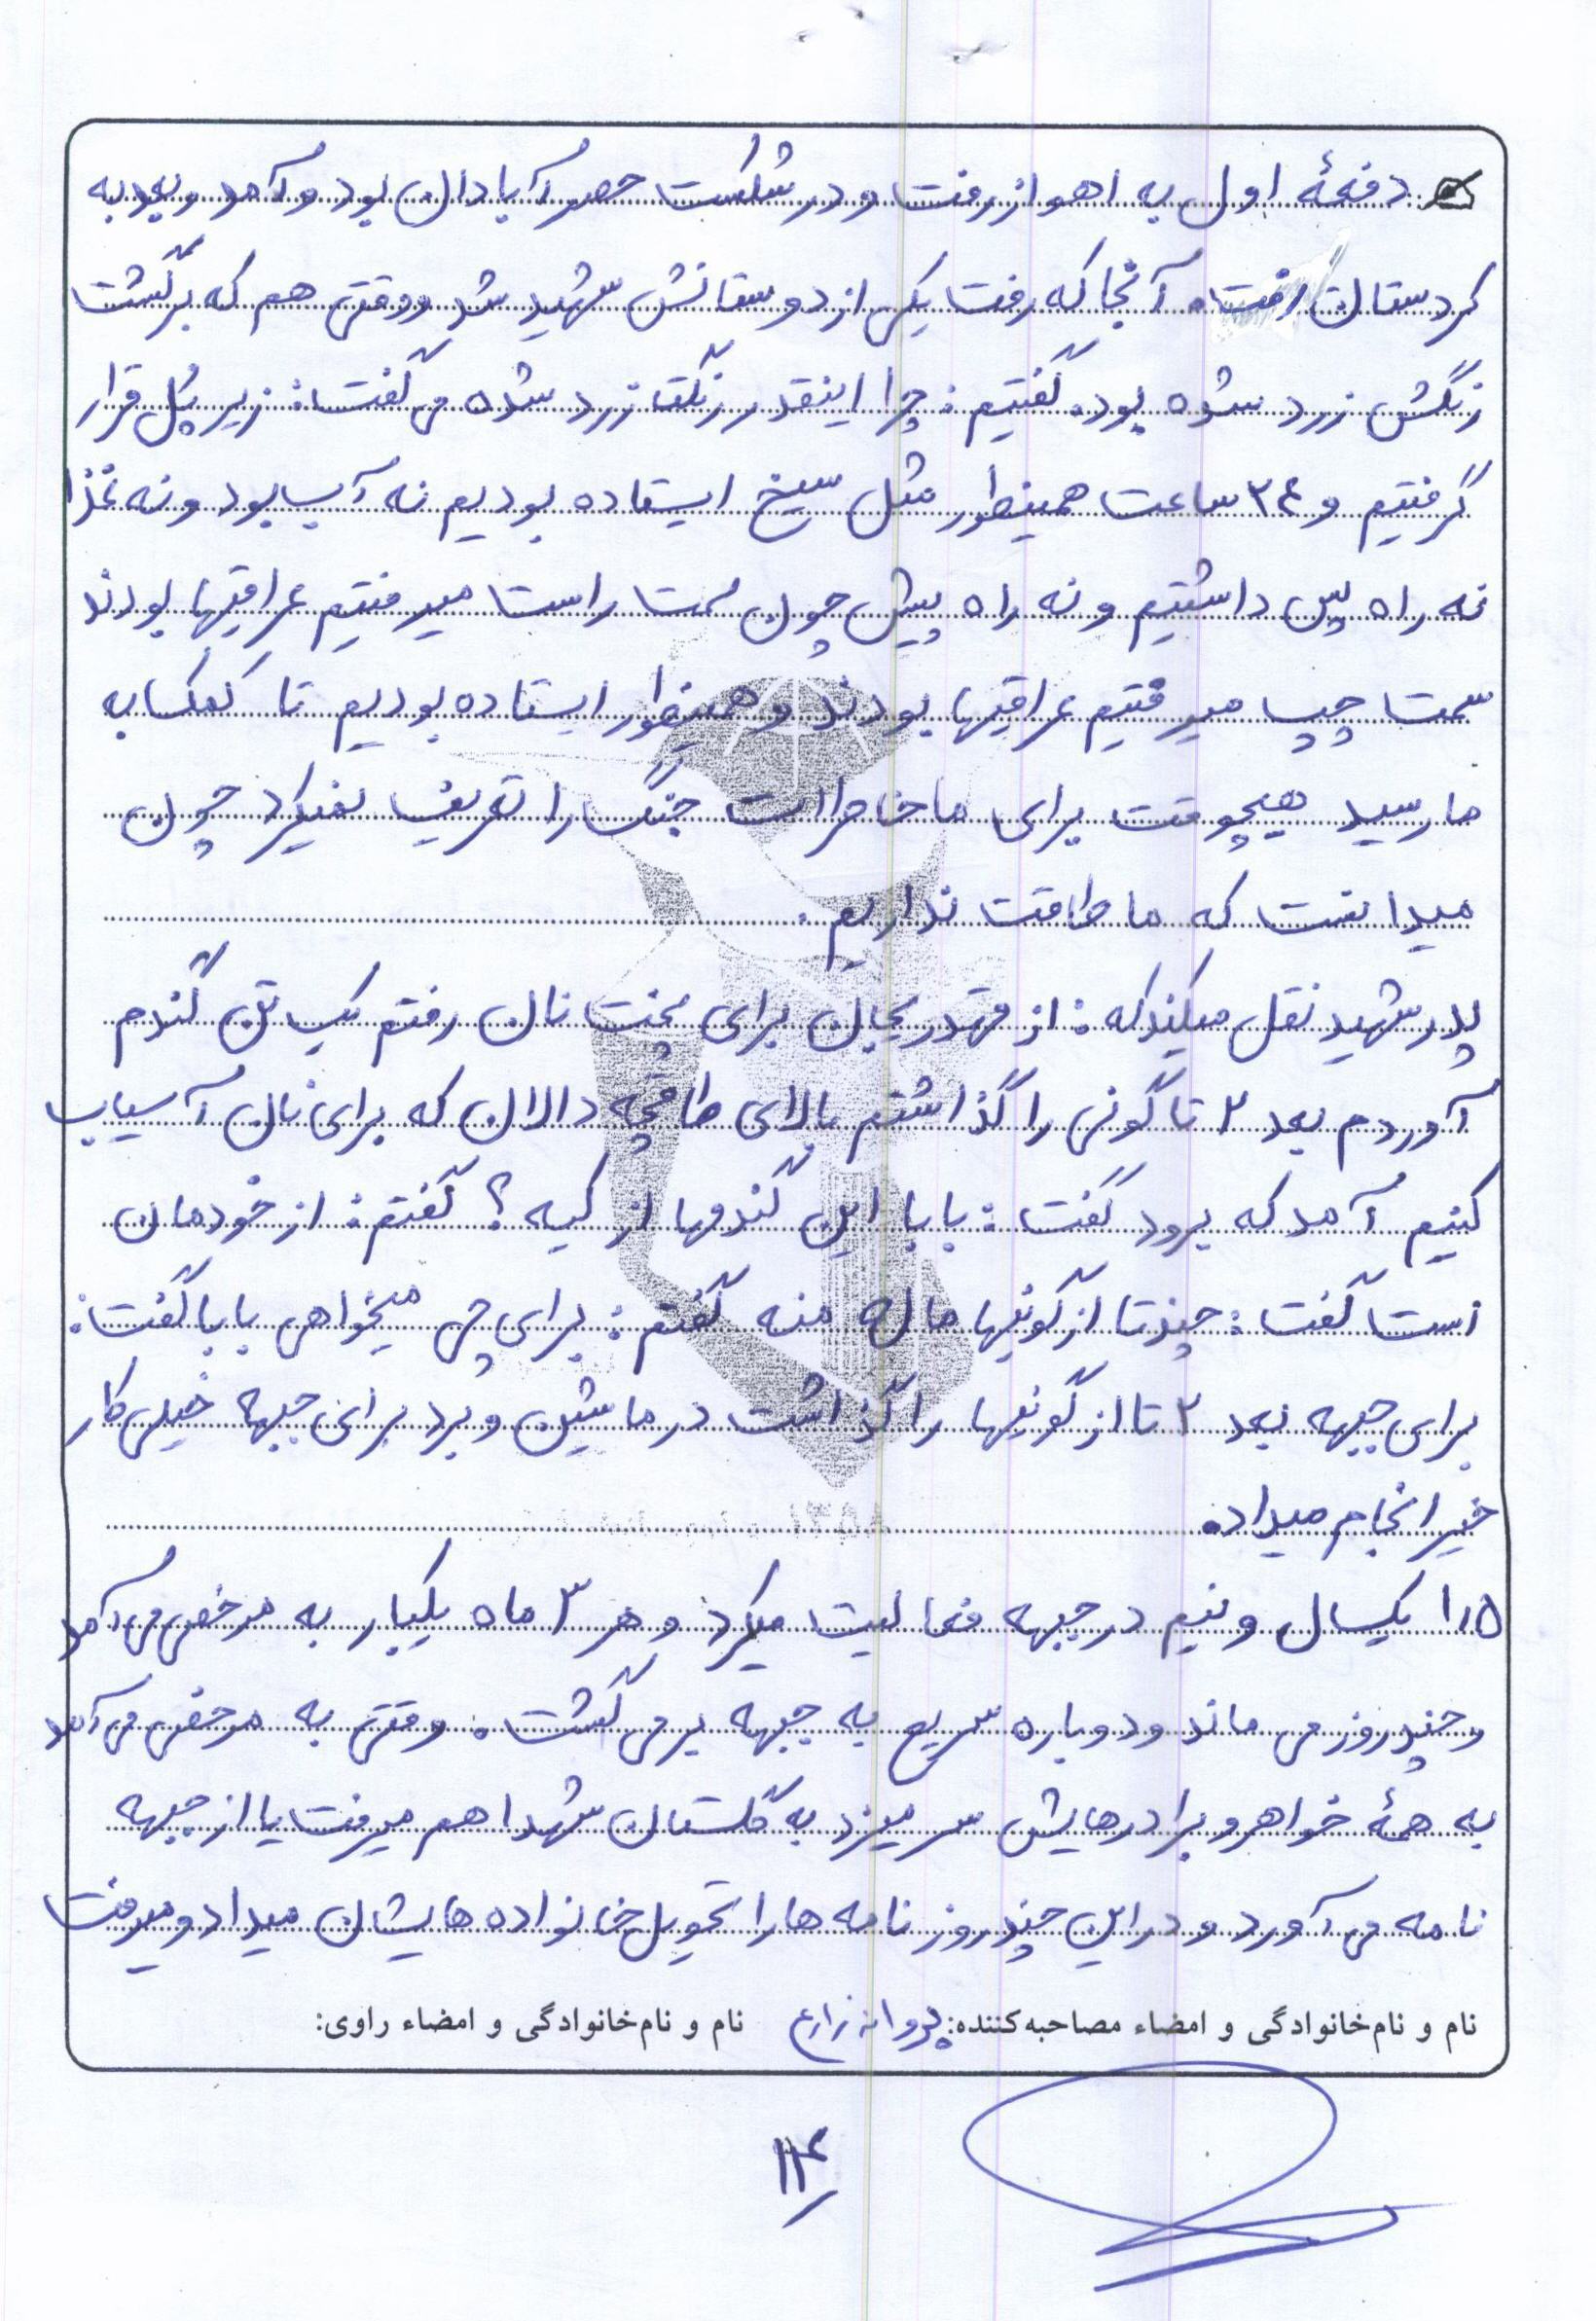 دفعهٔ اول به اهواز رفت و در شکست حصر آبادان بود و آمد و بعد به
کردستان رفت. آنجا که رفت یکی از دوستانش شهید شد و وقتی هم که برگشت
رنگش زرد شده بود. گفتیم: چرا اینقدر رنگت زرد شده می گفت: زیر پل قرار
گرفتیم و ۲۴ ساعت همینطور مثل سیخ ایستاده بودیم نه آب بود و نه غذا
نه راه پس داشتیم و نه راه پیش چون سمت راست میرفتیم عراقیها بودند
سمت چپ میرفتیم عراقیها بودند و همینطور ایستاده بودیم تا کمک به
ما رسید هیچوقت برای ما خاطرات جنگ را تعریف نمیکرد چون
میدانست که ما طاقت نداریم.
پدر شهید نقل میکند که: از قهدریجان برای پخت نان رفتم یک تن گندم
آوردم بعد ۲ تا گونی را گذاشتم بالای طاقچه دالان که برای نان آسیاب
کنیم آمد که برود گفت: بابا این گندمها از کیه؟ گفتم: از خودمان
است گفت: چندتا از گونیها مال منه گفتم: برای چی میخواهی بابا گفت:
برای جبهه بعد ۲ تا از گونیها را گذاشت در ماشین و برد برای جبهه خیلی کار
خیر انجام میداد.
۱٫۵ یکسال و نیم در جبهه فعالیت میکرد و هر ۳ ماه یکبار به مرخصی می آمد
و چند روز می ماند و دوباره سریع به جبهه برمی گشت. وقتی به مرخصی می آمد
به همهٔ خواهر و برادرهایش سر میزد به گلستان شهدا هم میرفت یا از جبهه
نامه می آورد و در این چند روز نامه ها را تحویل خانواده هایشان میداد و میرفت
نام و نام‌خانوادگی و امضاء مصاحبه‌کننده: پروانه زارع نام و نام‌خانوادگی و امضاء راوی: